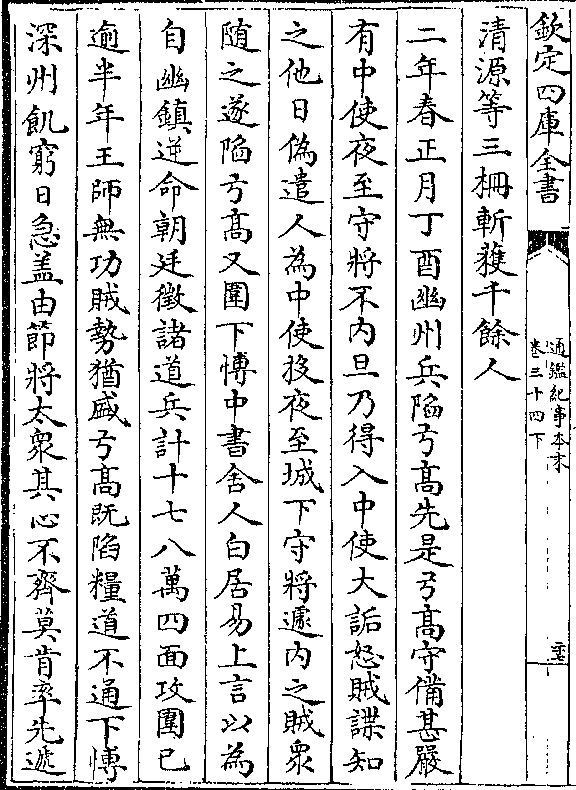 欽定四庫全書
通鑑紀事本末
卷三十四下
清源等三柵斬獲千餘人
二年春正月丁酉幽州兵陷弓髙先是弓髙守備甚嚴
有中使夜至守將不内旦乃得入中使大詬怒賊諜知
之他日偽遣人為中使投夜至城下守將遽内之賊衆
随之遂陷弓髙又圍下愽中書舍人白居易上言以為
自幽鎮逆命朝廷徵諸道兵計十七八萬四面攻圍已
逾半年王師無功賊勢猶盛弓髙既陷糧道不通下愽
深州飢窮日急盖由節將太衆其心不齊莫肯率先遞